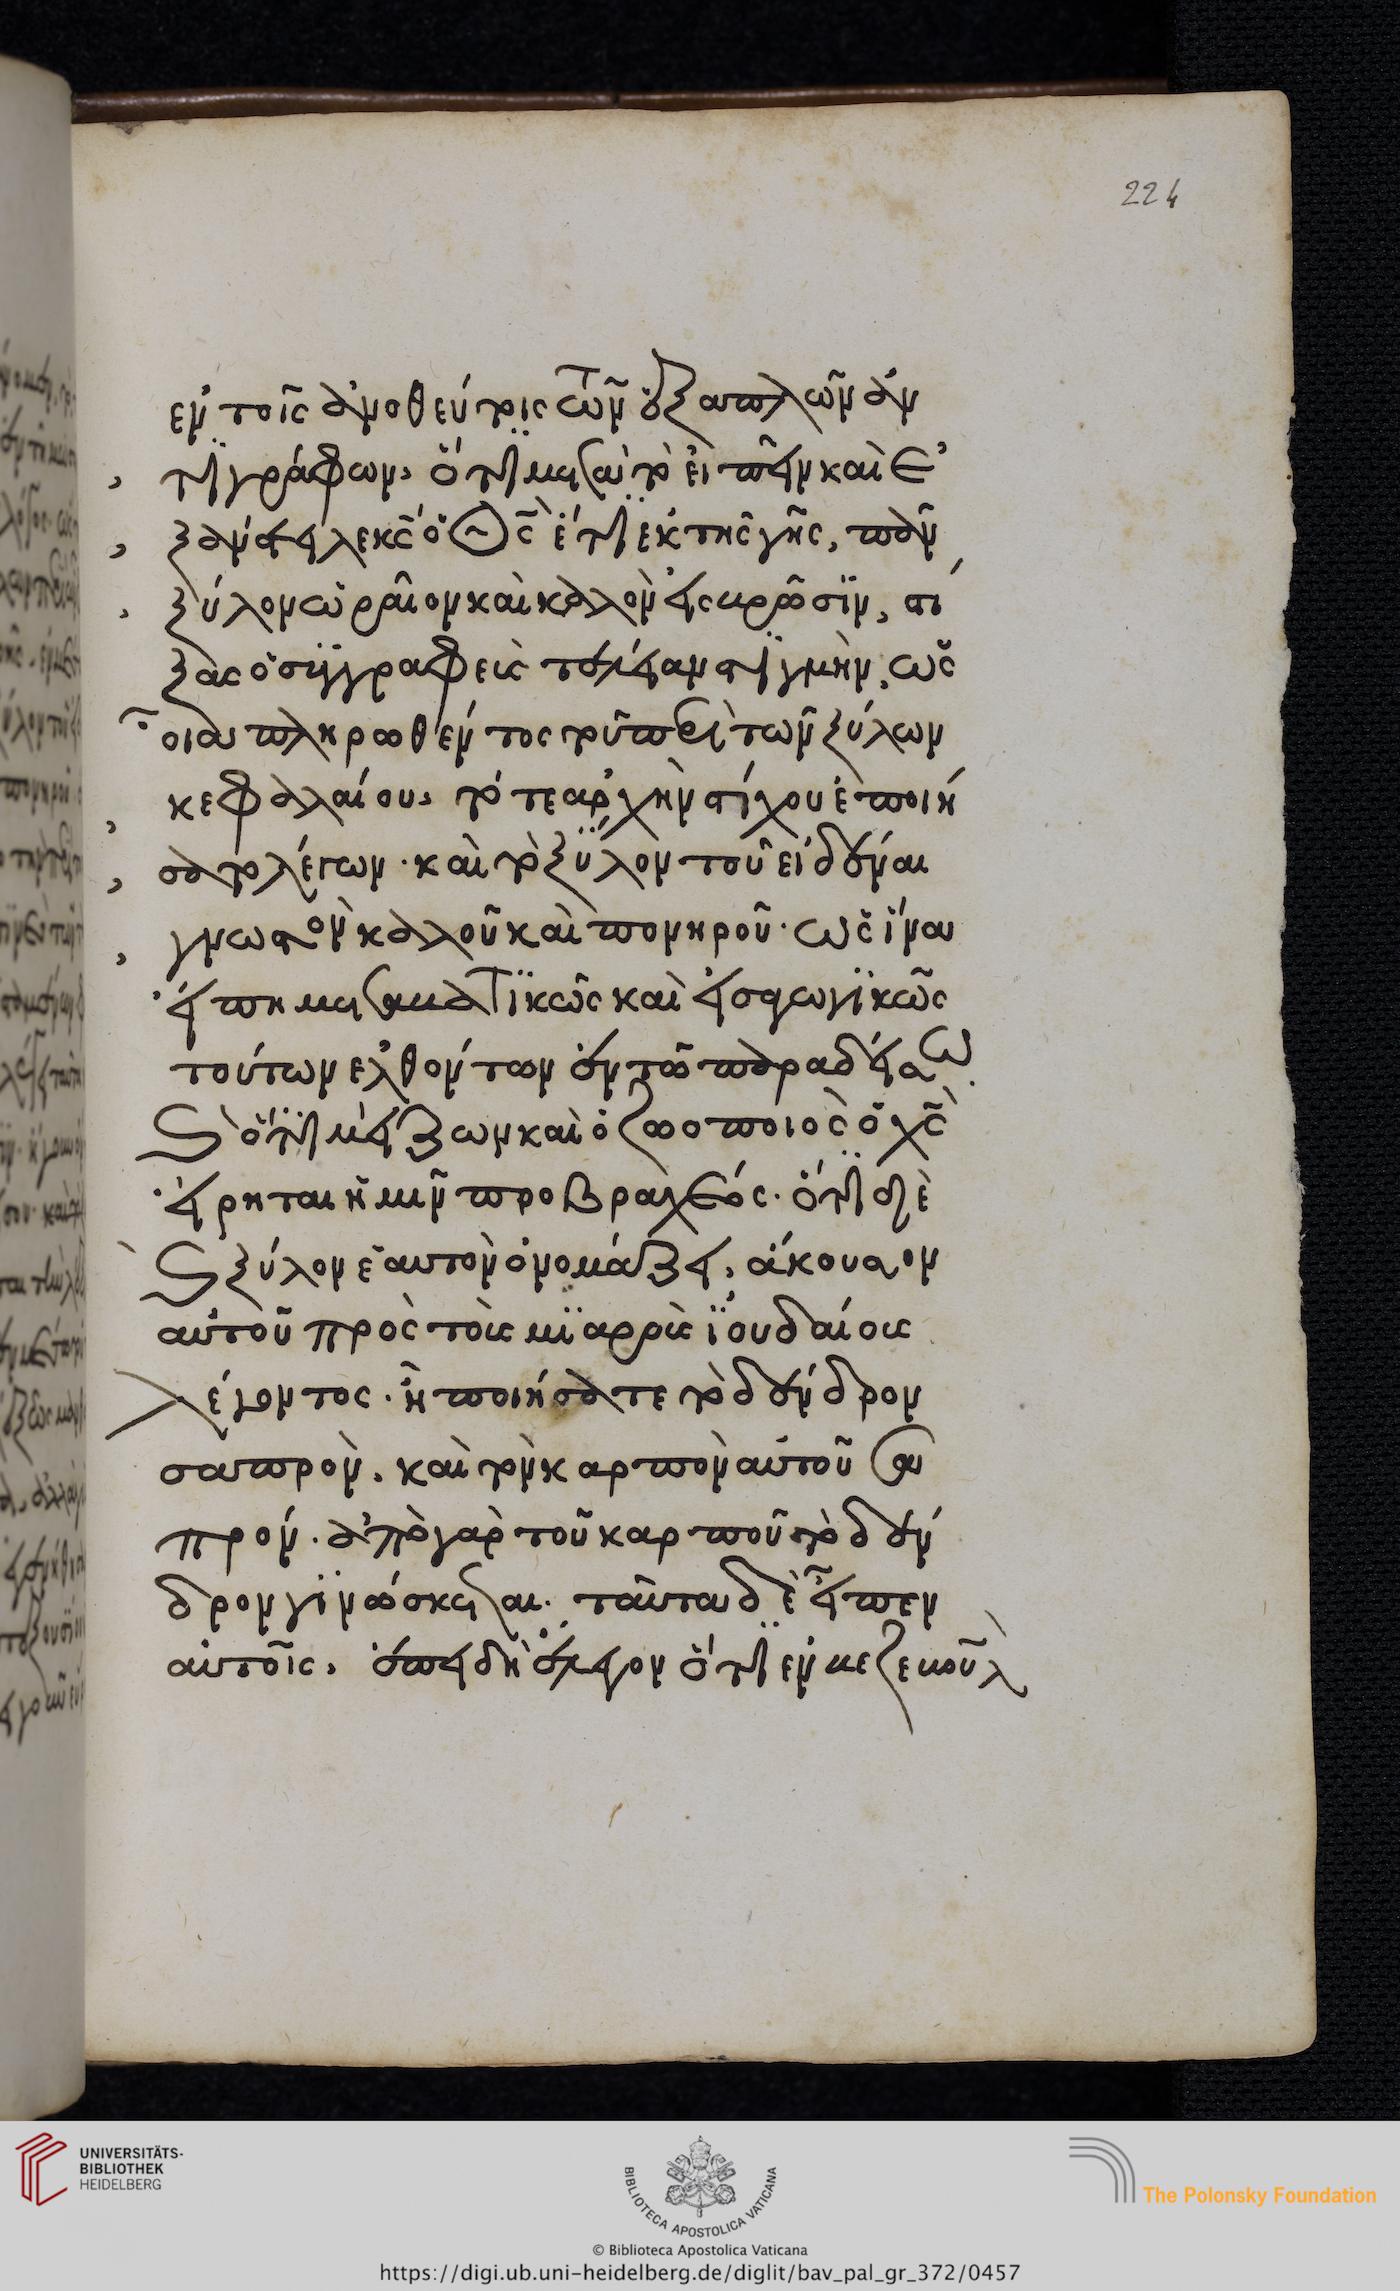 224
ἐν τοῖς ἀνοθεύτοις τῶν ἑξαπλῶν ἀν
τιγράφων, ὅτι μετὰ τὸ εἰπεῖν καὶ ἐ
ξανέτειλεν ὁ Θς ἔτι ἐκ τῆς γῆς, πᾶν
ξύλον ὡραῖον καὶ καλὸν εἰς βρῶσιν, στί
ξας ὁ συγγραφεὺς τελείαν στιγμὴν, ὡς
οἷα πληρωθέντος τοῦ περὶ τῶν ξύλων
κεφαλαίου, τότε ἀρχὴν στίχου ἐποιή
σατο λέγων· καὶ τὸ ξύλον τοῦ εἰδέναι
γνωστὸν καλοῦ καὶ πονηροῦ· ὡς ἵνα
εἴπῃ
τούτων ἐλθόντων ἐν τῷ παραδείσῳ
ὅτι μείζων καὶ ὁ ζωοποιὸς ὁ χς
εἴρηται ἡμῖν πρὸ βραχέος· ὅτι δὲ
ξύλον ἑαυτὸν ὀνομάζει, ἄκουσον
αὐτοῦ πρὸς τοὺς μιαροὺς ἰουδαίους
λέγοντος· ἢ ποιήσατε τὸ δένδρον
σαπρὸν, καὶ τὸν καρπὸν αὐτοῦ σα
πρόν· ἀπὸ γὰρ τοῦ καρποῦ τὸ δέν
δρον γινώσκεται· ταῦτα δὲ εἶπεν
αὐτοῖς, ἐπειδὴ ἔλεγον ὅτι ἐν βεεζεβοὺλ
UNIVERSITÄTS-
BIBLIOTHEK
HEIDELBERG
BIBLIOTECA APOSTOLICA VATICANA
The Polonsky Foundation
© Biblioteca Apostolica Vaticana
https://digi.ub.uni-heidelberg.de/diglit/bav_pal_gr_372/0457